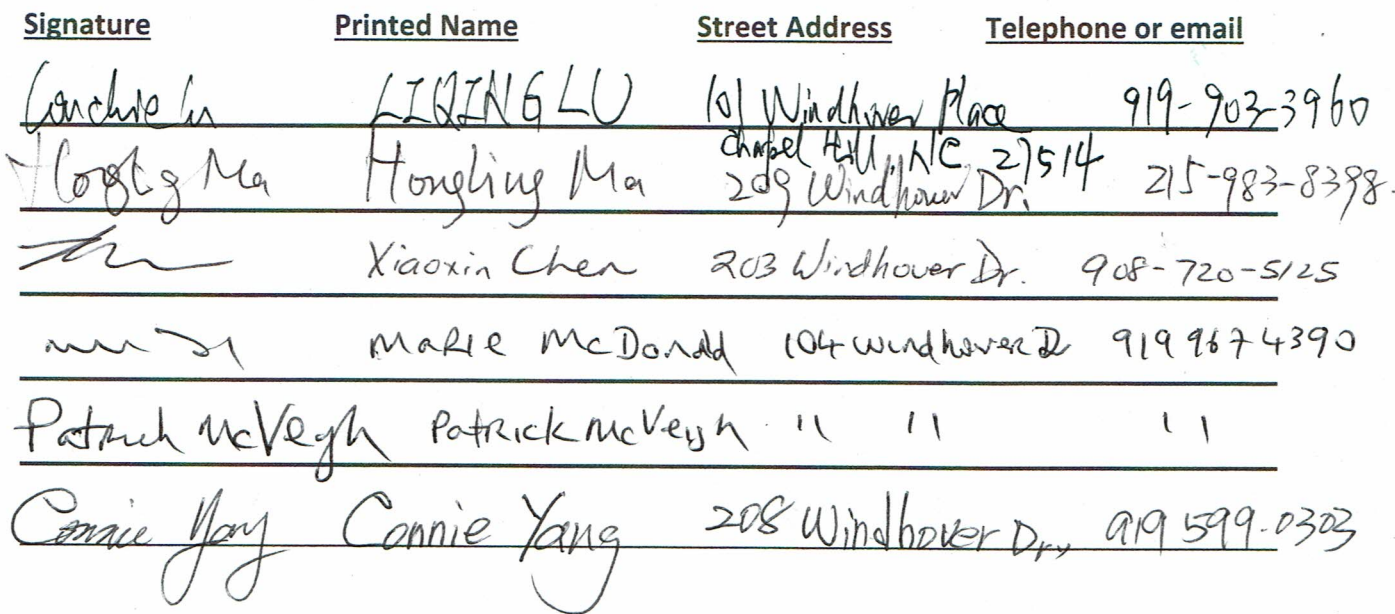 Signature Printed Name Street Address Telephone or email
LIQING LU 101 Windhover Place 919-903-3960
Chapel Hill, NC 27514
Ma Hongling Ma 209 Windhover Dr. 215-983-8398
Xiaoxin Chen 203 Windhover Dr. 908-720-5125
MaRie McDonald 104 Windhover D 919 967 4390
Patrick McVeigh Patrick McVeigh " " "
Connie Yang Connie Yang 208 Windhover Dr., 919 599-0303